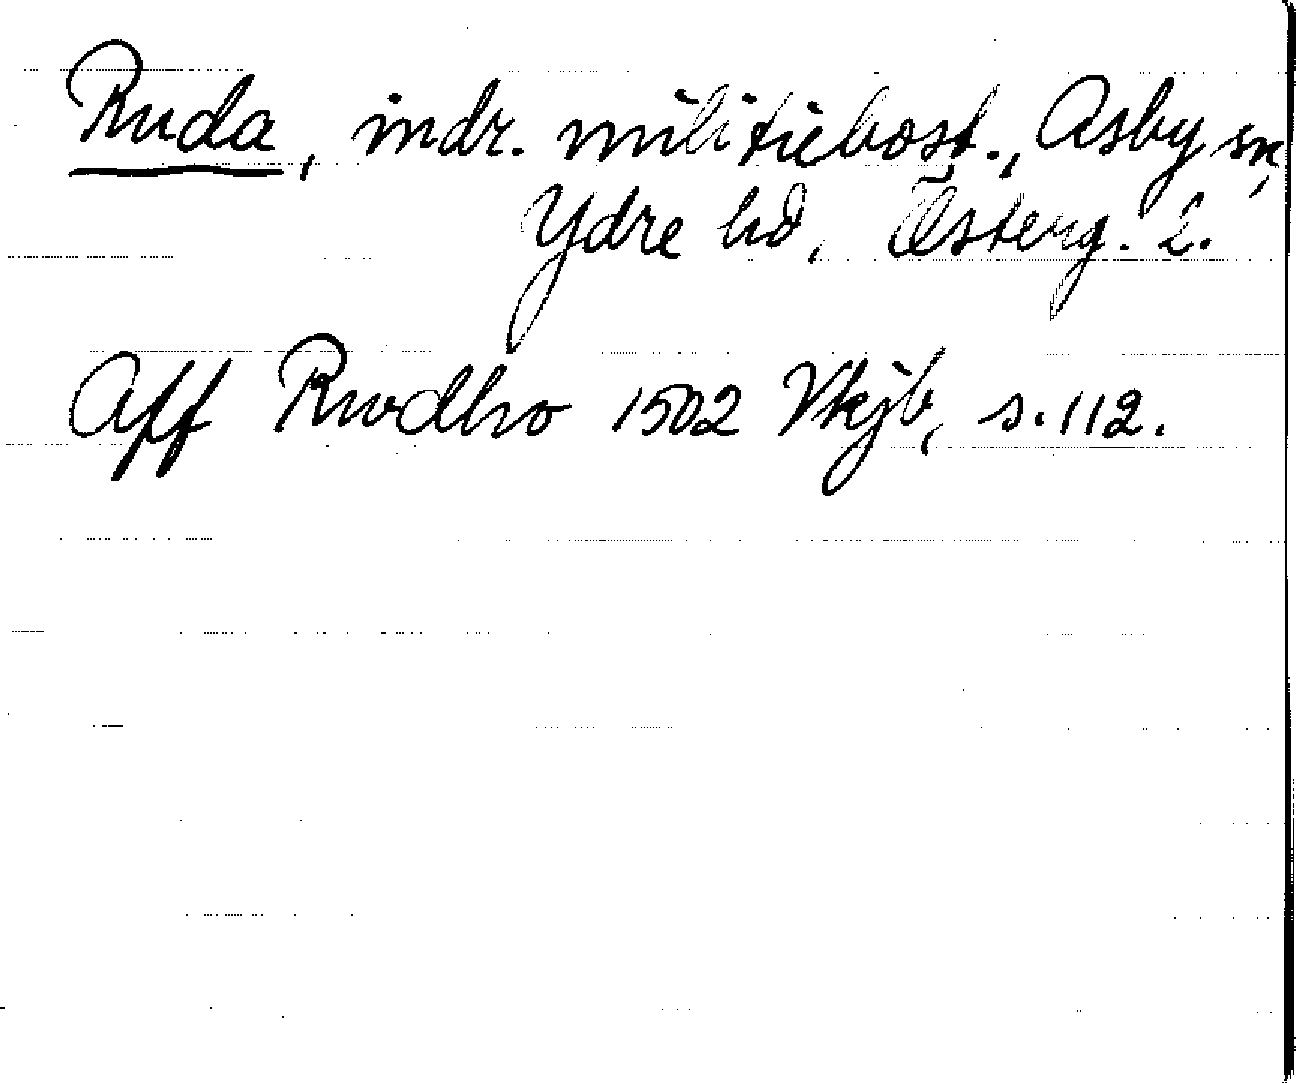 Ruda, indr. militiebost., Asby sn,
Ydre hd, Österg. l.
Aff Rwdho 1502 Vkjb, s. 112.